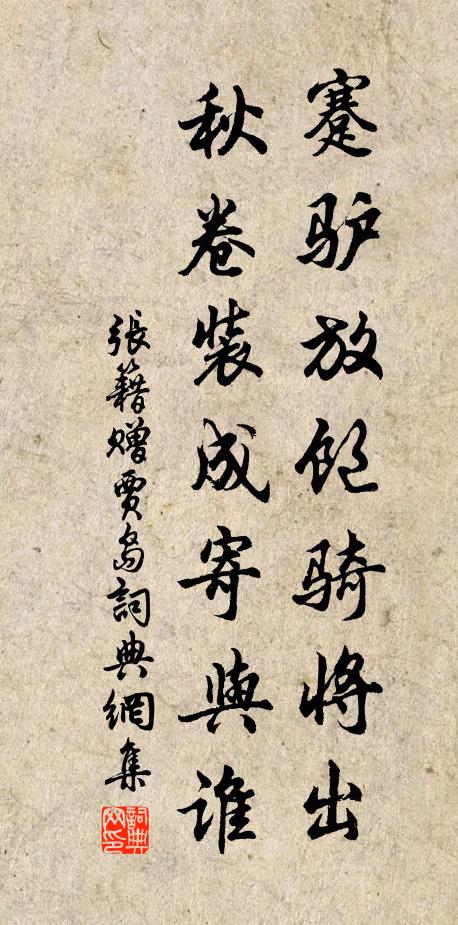 蹇驴放饱骑将出
秋卷装成寄與谁
張籍赠賈島詞典網集
詞典网印